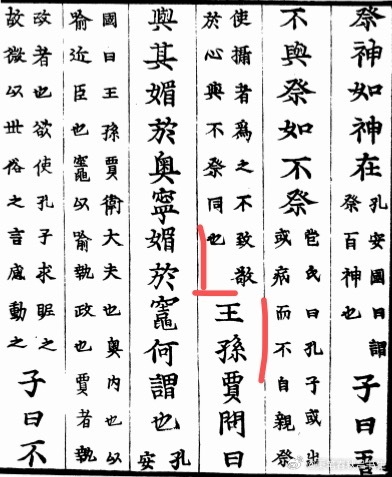 祭神如神在
孔安國曰謂
祭百神也
子曰吾
不與祭如不祭
苞氏曰孔子或出
或病而不自親祭
使攝者爲之不致敬
於心與不祭同也
王孫賈問曰
與其媚於奧寧媚於竈何謂也
孔
安
國曰王孫賈衛大夫也奧内也以
喻近臣也竈以喻執政也賈者執
政者也欲使孔子求昵之
故微以世俗之言感動之
子曰不